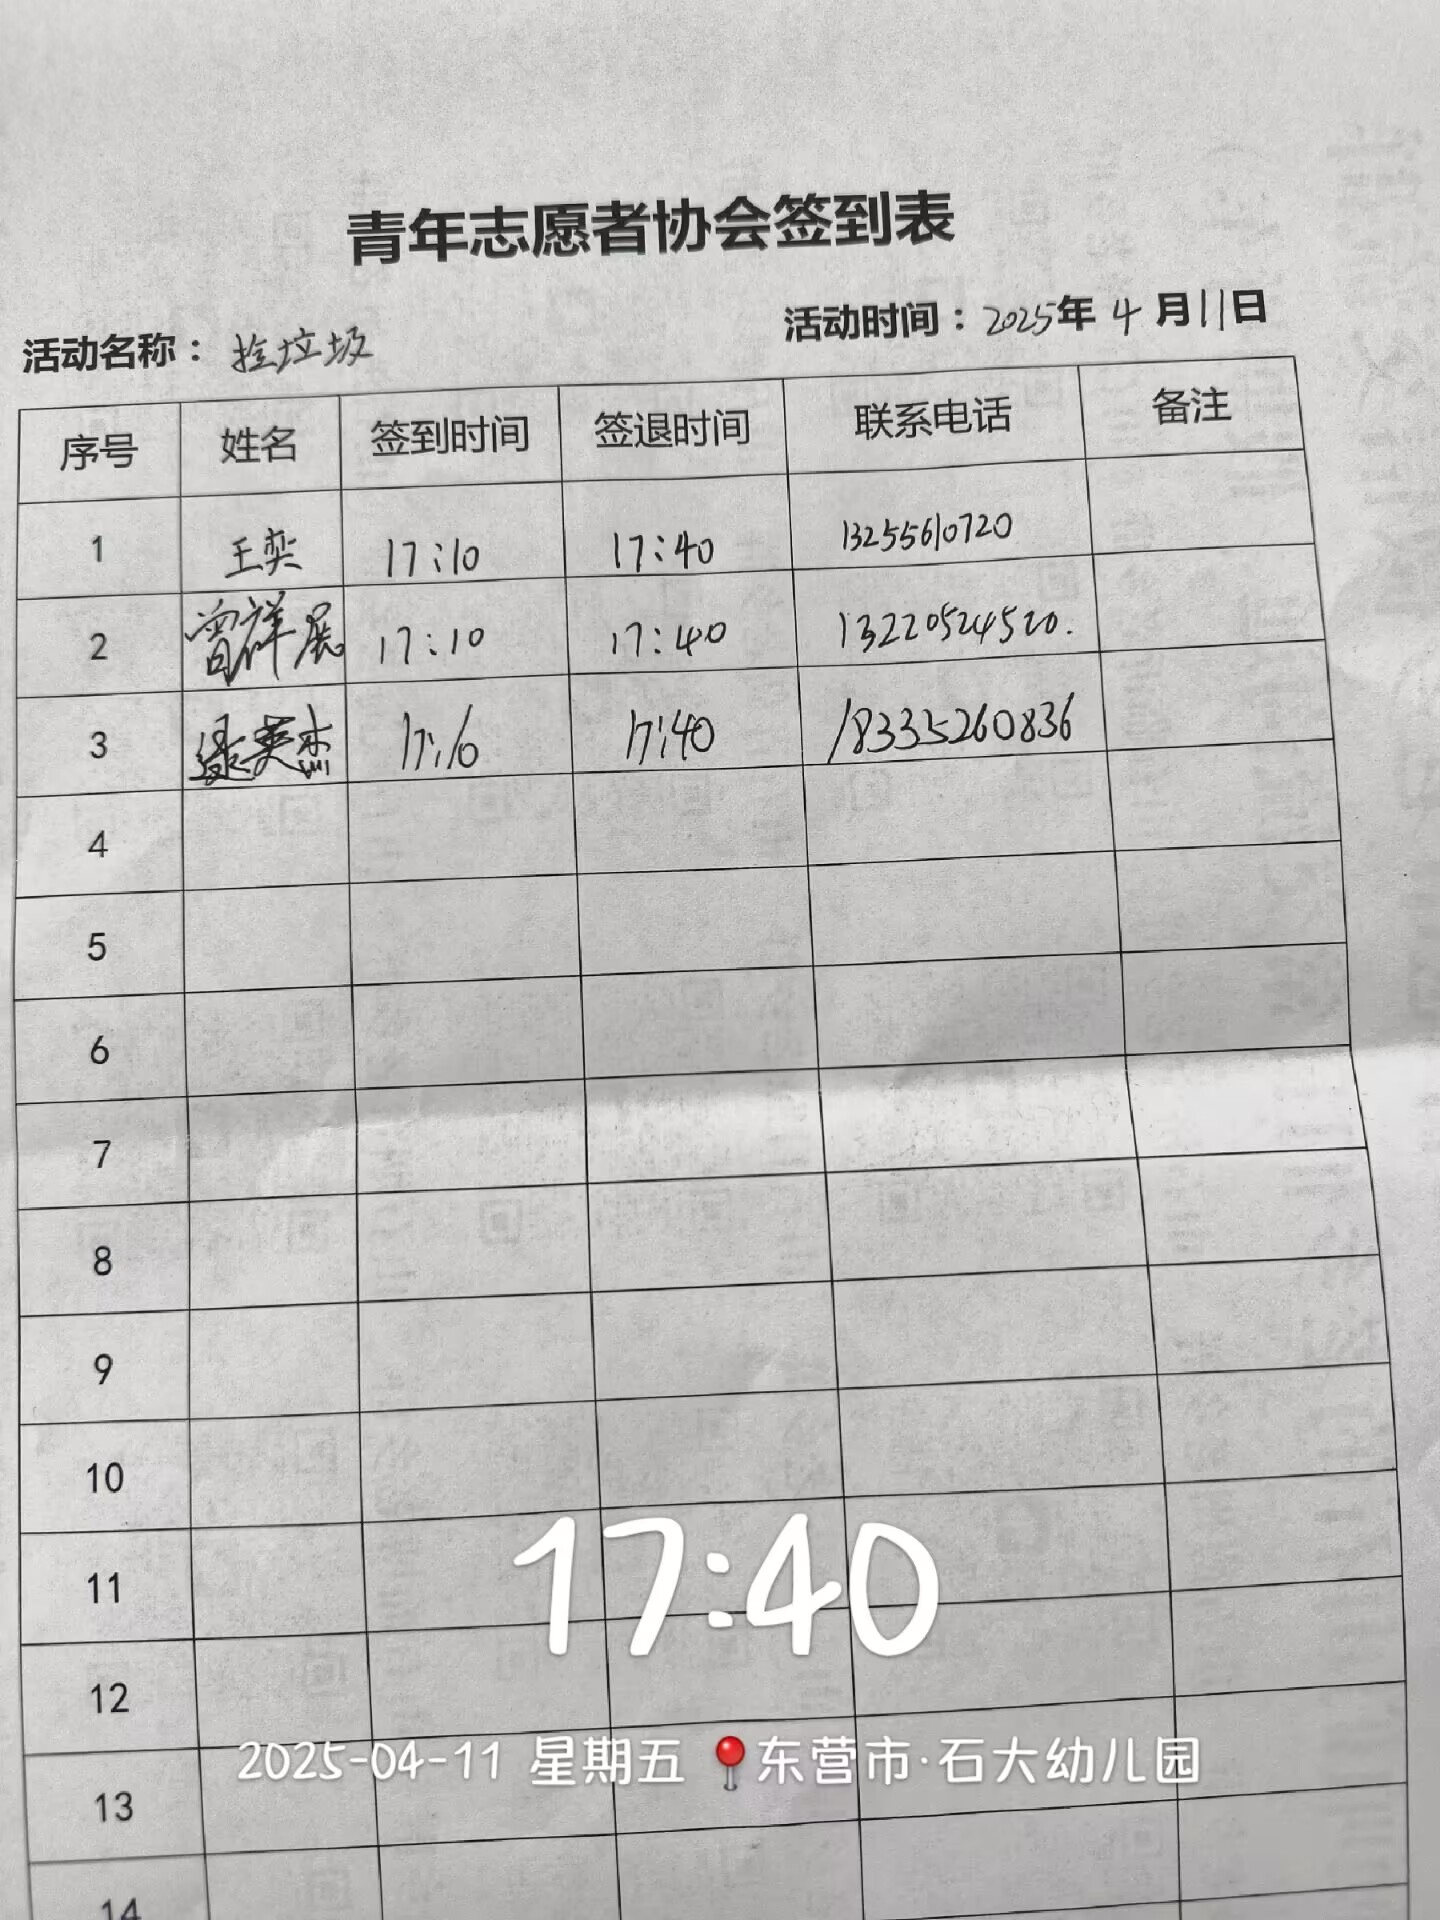 青年志愿者协会签到表
活动名称： 捡垃圾 活动时间：2025年4月11日
序号 姓名 签到时间 签退时间 联系电话 备注
1 王奕 17:10 17:40 13255610720
2 曾祥展 17:10 17:40 13220524520.
3 英杰 17:10 17:40 18335260836
4
5
6
7
8
9
10
11
12
13
14
17:40
2025-04-11 星期五 📍东营市·石大幼儿园